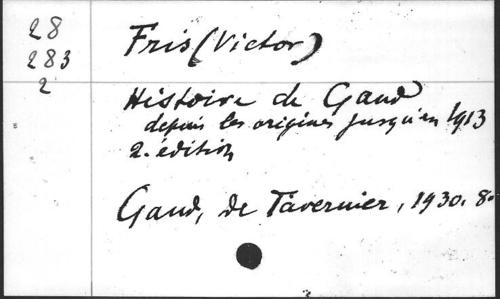 28
283
2
Fris (Victor)
Histoire de Gand
depuis les origines jusqu'en 1913
2. édition
Gand, de Tavernier, 1930. 8°